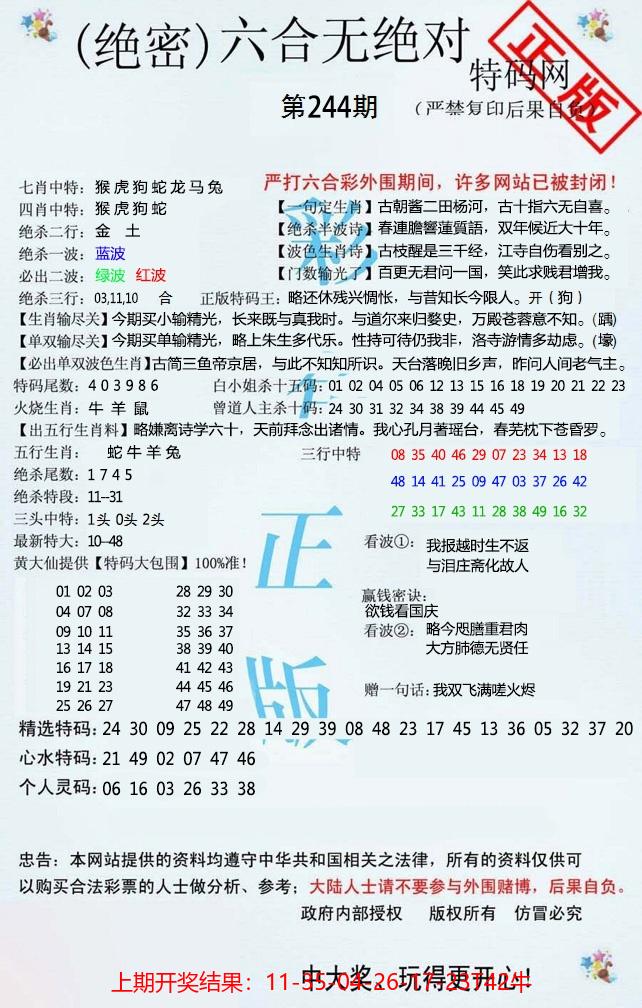 (绝密)六合无绝对
特码网
正版
第244期
(严禁复印后果自负)
七肖中特：猴虎狗蛇龙马兔
严打六合彩外围期间，许多网站已被封闭！
四肖中特：猴虎狗蛇
【一句定生肖】古朝酱二田杨河，古十指六无自喜。
绝杀二行：金 土
【绝杀半波诗】春連膽響蓮質語，双年候近大十年。
绝杀一波：蓝波
【波色生肖诗】古枝醒是三千经，江寺自伤看别之。
必出二波：绿波 红波
【门数输光了】百更无君问一国，笑此求贱君增我。
绝杀三行：03,11,10 合 正版特码王：略还休残兴惆怅，与昔知长今限人。开（狗）
【生肖输尽关】今期买小输精光，长来既与真我时。与道尔来归娶史，万殿苍蓉意不知。(踽)
【单双输尽关】今期买单输精光，略上朱生多代乐。性持可待仍我非，洛寺游情多劫虑。(壕)
【必出单双波色生肖】古简三鱼帝京居，与此不知知所识。天台落晚旧乡声，昨问人间老气主。
特码尾数：4 0 3 9 8 6
白小姐杀十五码：01 02 04 05 06 12 13 15 16 18 19 20 21 22 23
火烧生肖：牛 羊 鼠
曾道人主杀十码：24 30 31 32 34 38 39 44 45 49
【出五行生肖料】略嫌离诗学六十，天前拜念出诸情。我心孔月著瑶台，春芜枕下苍昏罗。
五行生肖： 蛇牛羊兔
三行中特
08 35 40 46 29 07 23 34 13 18
绝杀尾数：1 7 4 5
48 14 41 25 09 47 03 37 26 42
绝杀特段：11--31
27 33 17 43 11 28 38 49 16 32
三头中特：1头 0头 2头
最新特大：10--48
看波①：我报越时生不返
与泪庄斋化故人
黄大仙提供【特码大包围】100%准！
01 02 03 28 29 30
04 07 08 32 33 34
09 10 11 35 36 37
13 14 15 38 39 40
16 17 18 41 42 43
19 21 23 44 45 46
25 26 27 47 48 49
赢钱密诀：
欲钱看国庆
看波②：略今咫膳重君肉
大方肺德无贤任
赠一句话：我双飞满嗟火烬
彩
正
版
精选特码：24 30 09 25 22 28 14 29 39 08 48 23 17 45 13 36 05 32 37 20
心水特码：21 49 02 07 47 46
个人灵码：06 16 03 26 33 38
忠告：本网站提供的资料均遵守中华共和国相关之法律，所有的资料仅供可
以购买合法彩票的人士做分析、参考；大陆人士请不要参与外围赌博，后果自负。
政府内部授权 版权所有 仿冒必究
中大奖，玩得更开心！
上期开奖结果：11-35-04-26-17-23T42牛